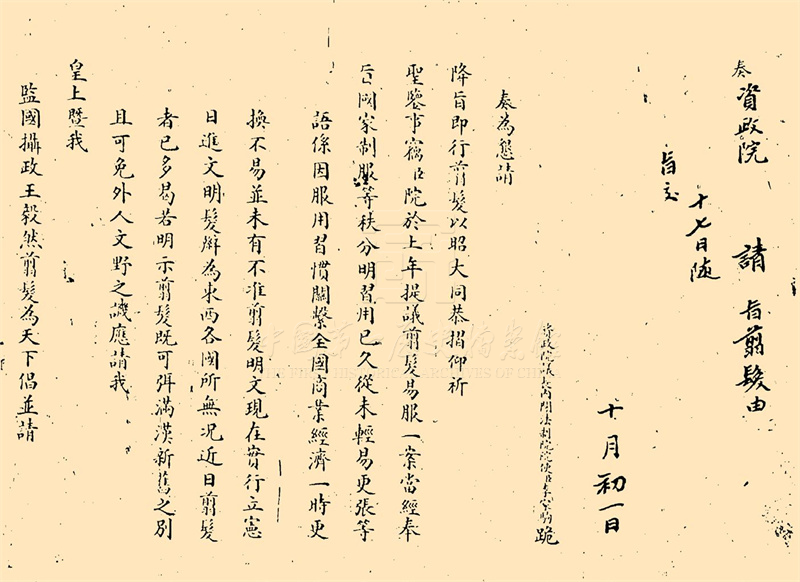 奏 資政院 請旨剪髮由
十七日随
旨交
十月初一日
資政院議長內閣法制院院使臣李家駒跪
奏為懇請
降旨即行剪髮以昭大同恭摺仰祈
聖鑒事竊臣院於上年提議剪髮易服一案當經奉
旨國家制服等秩分明習用已久從未輕易更張等
語係因服用習慣關繫全國商業經濟一時更
換不易並未有不准剪髮明文現在實行立憲
日進文明髮辮為東西各國所無况近日剪髮
者已多曷若明示剪髮既可弭滿漢新舊之別
且可免外人文野之譏應請我
皇上暨我
監國攝政王毅然剪髮為天下倡並請